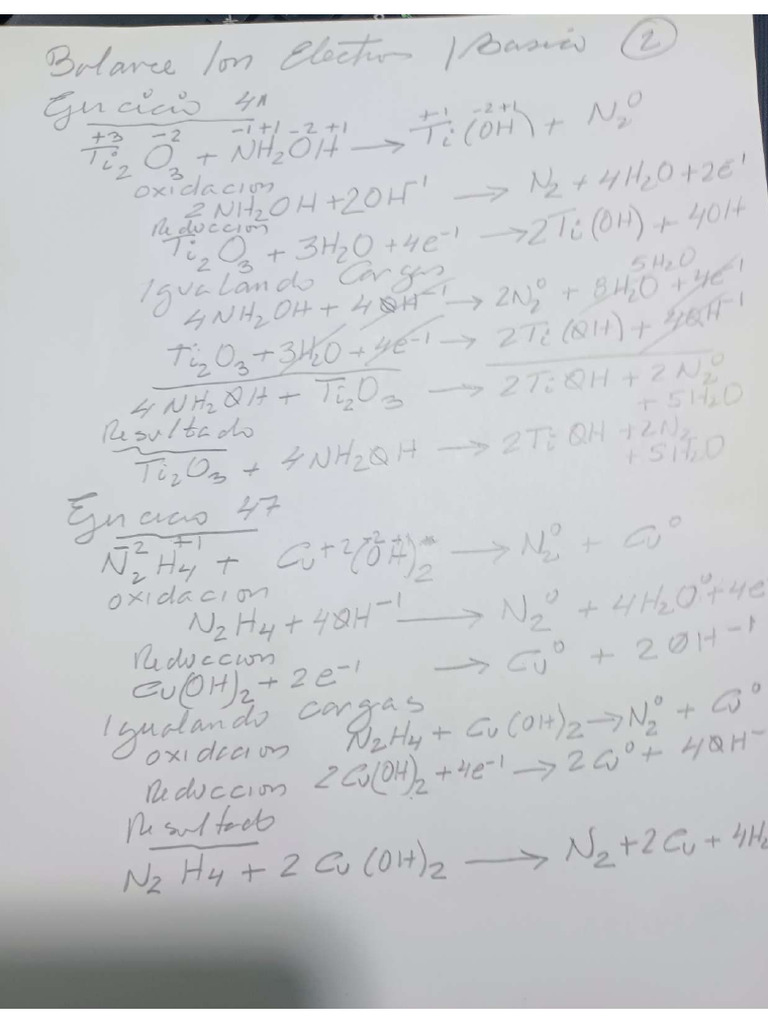 Balance Ion Electron / Basico ②
Ejercicio 41
+3 -2 -1 +1 -2 +1 +1 -2 +1
Ti₂O₃ + NH₂OH → Ti(OH) + N₂⁰
oxidacion
2NH₂OH + 2OH⁻¹ → N₂ + 4H₂O + 2e⁻¹
Reduccion
Ti₂O₃ + 3H₂O + 4e⁻¹ → 2Ti(OH) + 4OH
Igualando Cargas
5H₂O
4NH₂OH + 4OH⁻¹ → 2N₂⁰ + 8H₂O + 4e⁻¹
Ti₂O₃ + 3H₂O + 4e⁻¹ → 2Ti(OH) + 4OH⁻¹
4NH₂OH + Ti₂O₃ → 2TiOH + 2N₂⁰
+ 5H₂O
Resultado
Ti₂O₃ + 4NH₂OH → 2TiOH + 2N₂
+ 5H₂O
Ejercicio 47
-2 +1 +2 -2 +
N₂H₄ + Cu(OH)₂ → N₂⁰ + Cu⁰
oxidacion
N₂H₄ + 4OH⁻¹ → N₂⁰ + 4H₂O⁰ + 4e
Reduccion
Cu(OH)₂ + 2e⁻¹ → Cu⁰ + 2OH⁻¹
Igualando cargas
oxidacion N₂H₄ + Cu(OH)₂ → N₂⁰ + Cu⁰
Reduccion 2Cu(OH)₂ + 4e⁻¹ → 2Cu⁰ + 4OH⁻
Resultado
N₂H₄ + 2Cu(OH)₂ → N₂ + 2Cu + 4H₂